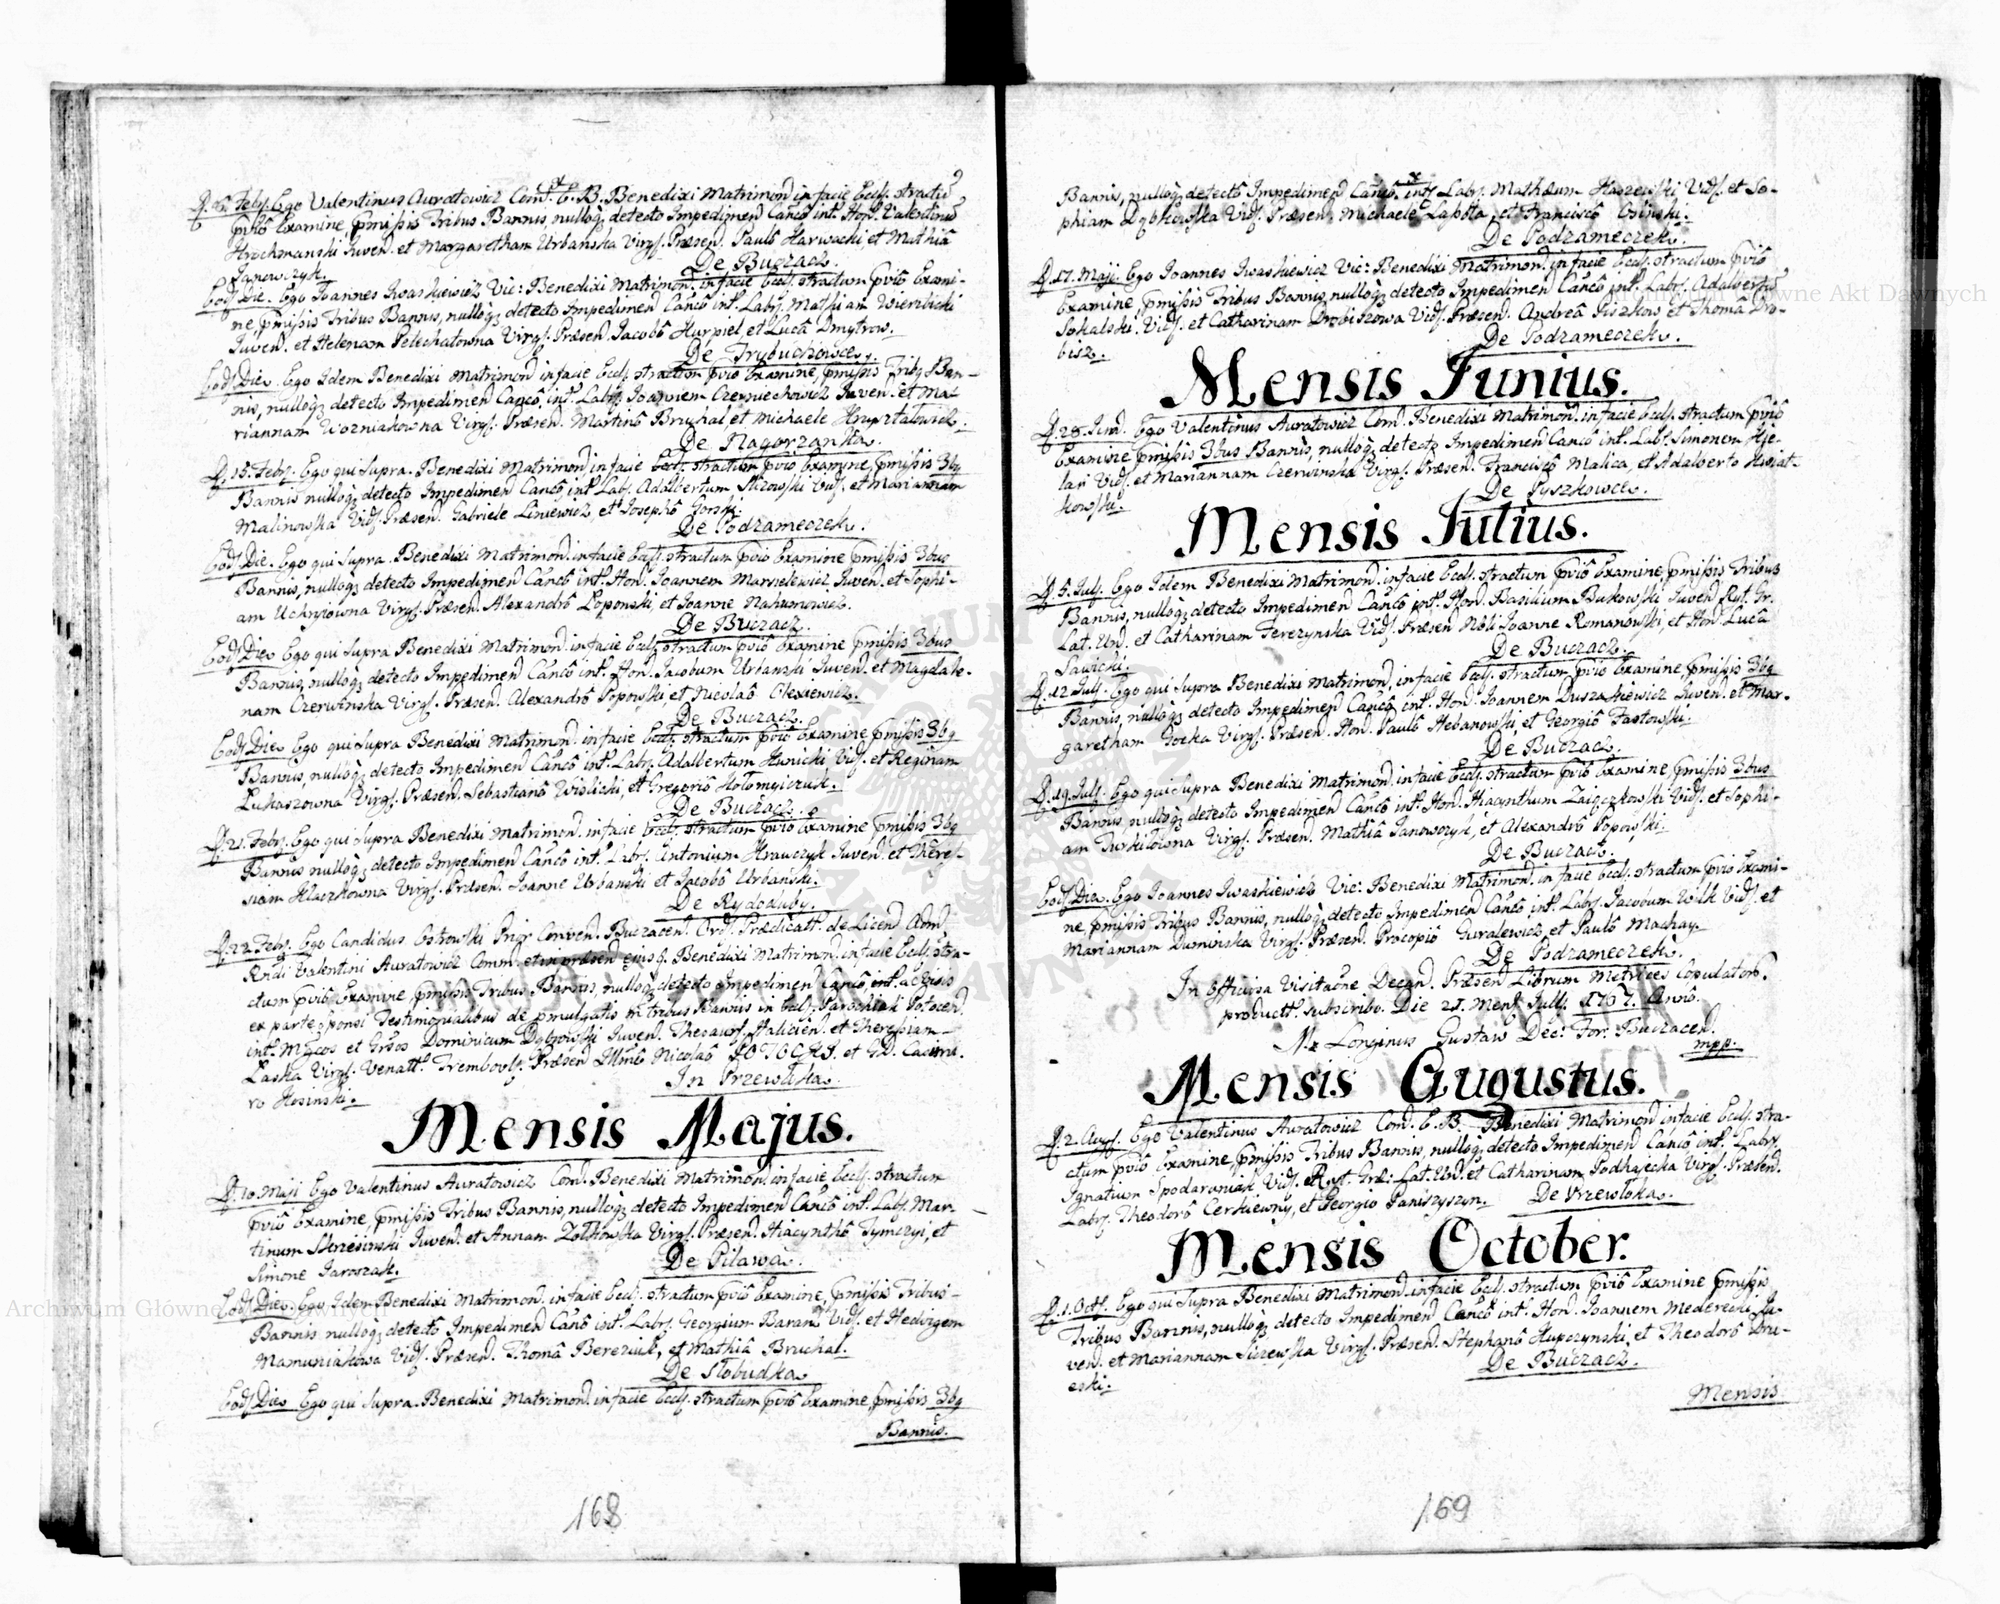 Ego Valentinus Auratowicz Com. E. B. Benedixi Matrimon. in facie Eccl. stractu
pviô Examine, pmißis Tribus Bannis, nulloq; detecto Impedimen Canco int. Hon. Valentinu
Hrochmanski Iuven. et Margaretham Urbanska Virg. Præsen. Paulô Harwacki, et Mathiâ
Janowczyk.
De Buczacz.
Eod. Die. Ego Joannes Iwaskiewicz Vic: Benedixi Matrimon. in facie Eccl. stractum pviô Exami-
ne, pmißis Tribus Bannis, nulloq; detecto Impedimen Canco int. Labr. Mathiam Wierzbicki
Iuven. et Helenam Pelechatowna Virg. Præsen. Iacobô Hurpiel, et Lucâ Dmytrow.
De Trybuchowce.
Eod. Die. Ego Idem Benedixi Matrimon. in facie Eccl. stractum pviô Examine, pmißis Trib9 Ban-
nis, nulloq; detecto Impedimen Canco. int. Labr. Ioannem Czerniechowicz Iuven. et Ma-
riannam Wozniakowna Virg. Præsen. Martinô Bruchal, et Michaele
De Nagorzanka.
D. 15. Febr. Ego qui Supra. Benedixi Matrimon. in facie Eccl. stractum pviô Examine, pmißis 3b9
Bannis nulloq; detecto Impedimen Canco int. Labr. Adalbertum Vid. et Mariannam
Malinowska Vid. Præsen. Gabriele Liniewicz, et Iosephô Gorski.
De Podzameczek.
Eod. Die. Ego qui Supra. Benedixi Matrimon. in facie Eccl. stractum pviô Examine pmißis 3bus
Bannis, nulloq; detecto Impedimen Canco int. Hon. Ioannem Iuven. et Sophi-
am Virg. Præsen. Alexandrô Poponski, et Ioanne Nahumowicz.
De Buczacz.
Eod. Die. Ego qui Supra Benedixi Matrimon. in facie Eccl. stractum pviô Examine pmißis 3bus
Bannis, nulloq; detecto Impedimen Canco int. Hon. Iacobum Urbanski Iuven. et Magdale-
nam Czerwinska Virg. Præsen. Alexandrô Popowski, et Nicolaô Olexiewicz.
De Buczacz.
Eod. Die. Ego qui Supra Benedixi Matrimon. in facie Eccl. stractum pviô Examine pmißis 3b9
Bannis, nulloq; detecto Impedimen Canco int. Labr. Adalbertum Hunicki Vid. et Reginam
Lukaszowna Virg. Præsen. Sebastianô Wislicki, et Gregoriô Holomyiczuk.
De Buczacz.
D. 21. Febr. Ego qui Supra Benedixi Matrimon. in facie Eccl. stractum pviô Examine pmißis 3b9
Bannis nulloq; detecto Impedimen Canco int. Labr. Antonium Krawczyk Iuven. et There-
siam Klaczkowna Virg. Præsen. Ioanne Urbanski et Iacobô Urbanski.
De Rydoduby.
D. 22. Febr. Ego Candidus Ostrowski Prior Conven. Buczacen. Ord. Prædicatt. de Licen Adm.
Rndi Valentini Auratowicz Comm. et in præsen ejusq. Benedixi Matrimon. in facie Eccl. stra-
ctum pviô Examine, pmißis Tribus Bannis, nulloq; detecto Impedimen Canco, int. acceptis
ex parte Sponsi Testimonialibus de pmulgatis tribus Bannis in Eccl. Parochiali Potocen.
int. Mgcos et Grsos Dominicum Dąbrowski Iuven. Thesaur. Halicien. et Theresiam
Laska Virg. Venatt. Trembovl. Præsen Illmô Nicolaô POTOCKI. et GD. Casimi-
ro Hosinski.
In Przewłoka.
Mensis Majus.
D. 10. Maji Ego Valentinus Auratowicz Com. Benedixi Matrimon. in facie Eccl. stractum
pviô Examine, pmißis Tribus Bannis, nulloq; detecto Impedimen Canco int. Labr. Mar-
tinum Skrzesinski Iuven. et Annam Zołkowska Virg. Præsen. Hiacynthô Tymczyi, et
Simone Jaroszak.
De Pilawa.
Eod. Die. Ego Idem Benedixi Matrimon. in facie Eccl. stractum pviô Examine, pmißis Tribus-
Bannis nulloq; detectô Impedimen Canco int. Labr. Georgium Baran Vid. et Hedvigem
Mamuniakowa Vid. Præsen. Thomâ Bereziuk, et Mathiâ Bruchal.
De Słobudka.
Eod. Die. Ego qui Supra. Benedixi Matrimon. in facie Eccl. stractum pviô Examine, pmißis 3b9
Bannis.
168
Bannis, nulloq; detectô Impedimen Canco. int. Labr. Mathæum Vid. et So-
phiam Dąbkowska Vid. Præsen. Michaele Labota, et Franciscô Osinski.
De Podzameczek.
D. 17. Maji. Ego Ioannes Iwaskiewicz Vic: Benedixi Matrimon. in facie Eccl. stractum pviô
Examine, pmißis Tribus Bannis, nulloq; detecto Impedimen Canco int. Labr. Adalbertu
Sokalski. Vid. et Catharinam Drobiszowa Vid. Præsen. Andreâ Tiszkow et Thomâ Dro-
bisz.
De Podzameczek.
Mensis Junius.
D. 28. Iun. Ego Valentinus Auratowicz Com. Benedixi Matrimon. in facie Eccl. stractum pviô
Examine pmißis 3bus Bannis, nulloq; detecto Impedimen Canco int. Lab. Simonem
Vid. et Mariannam Czerwinska Virg. Præsen. Franciscô Malica, et Adalberto Kwiat-
kowski.
De Pyszkowce.
Mensis Julius.
D. 5. Jul. Ego Idem Benedixi Matrimon. in facie Eccl. stractum pviô Examine, pmißis Tribus
Bannis, nulloq; detecto Impedimen Canco int. Hon. Basilium Bukowski Iuven. Rut. Gr.
Lat. Un. et Catharinam Terezynska Vid. Præsen Nbli Ioanne Romanowski, et Hon. Lucâ
Sawicki.
De Buczacz.
D. 12. Jul. Ego qui Supra Benedixi Matrimon. in facie Eccl. stractum pviô Examine, pmißis 3b9
Bannis, nulloq; detecto Impedimen Canco int. Hon. Ioannem Duszakiewicz Iuven. et Mar-
garetham Gocka Virg. Præsen. Hon. Paulô Hebanowski, et Georgiô Fastowski.
De Buczacz.
D. 19. Jul. Ego qui Supra Benedixi Matrimon. in facie Eccl. stractum pviô Examine, pmißis 3bus
Bannis, nulloq; detecto Impedimen Canco int. Hon. Hiacynthum Zaięczkowski Vid. et Sophi-
am Turkitowna Virg. Præsen. Mathiâ Janowczyk, et Alexandrô Popowski.
De Buczacz.
Eod. Die. Ego Ioannes Iwaskiewicz Vic: Benedixi Matrimon. in facie Eccl. stractum pviô Exami-
ne, pmißis Tribus Bannis, nulloq; detecto Impedimen Canco int. Labr. Iacobum Wilk Vid. et
Mariannam Duminska Virg. Præsen. Procopiô Guralewicz, et Paulô Machay.
De Podzameczek.
In Officiosa Visitatne Decan. Præsen Librum Metrices Copulatoru.
productt. subscribo. Die 21. Mens. Jull. 1767. Annô.
Mr Longinus Gustaw Dec: For: Buczacen.
mpp.
Mensis Augustus.
D. 2. Aug. Ego Valentinus Auratowicz Com. E. B. Benedixi Matrimon. in facie Eccl. stra-
ctum pviô Examine, pmißis Tribus Bannis, nulloq; detecto Impedimen Canco int. Labr.
Ignatium Spodaruniak Vid. Rut. Græ: Lat. Un. et Catharinam Podhajecka Virg. Præsen.
Labr. Theodorô Cerkiewny, et Georgio Paniszyszyn.
De Przewłoka.
Mensis October.
D. 1. Oct. Ego qui Supra Benedixi Matrimon. in facie Eccl. stractum pviô Examine pmißis
Tribus Bannis, nulloq; detecto Impedimen Canco int. Hon. Ioannem Mederecki Iu-
ven. et Mariannam Siczewska Virg. Præsen. Stephanô Hupczynski, et Theodorô Dru-
eski.
De Buczacz.
Mensis
169
Archiwum Główne Akt Dawnych